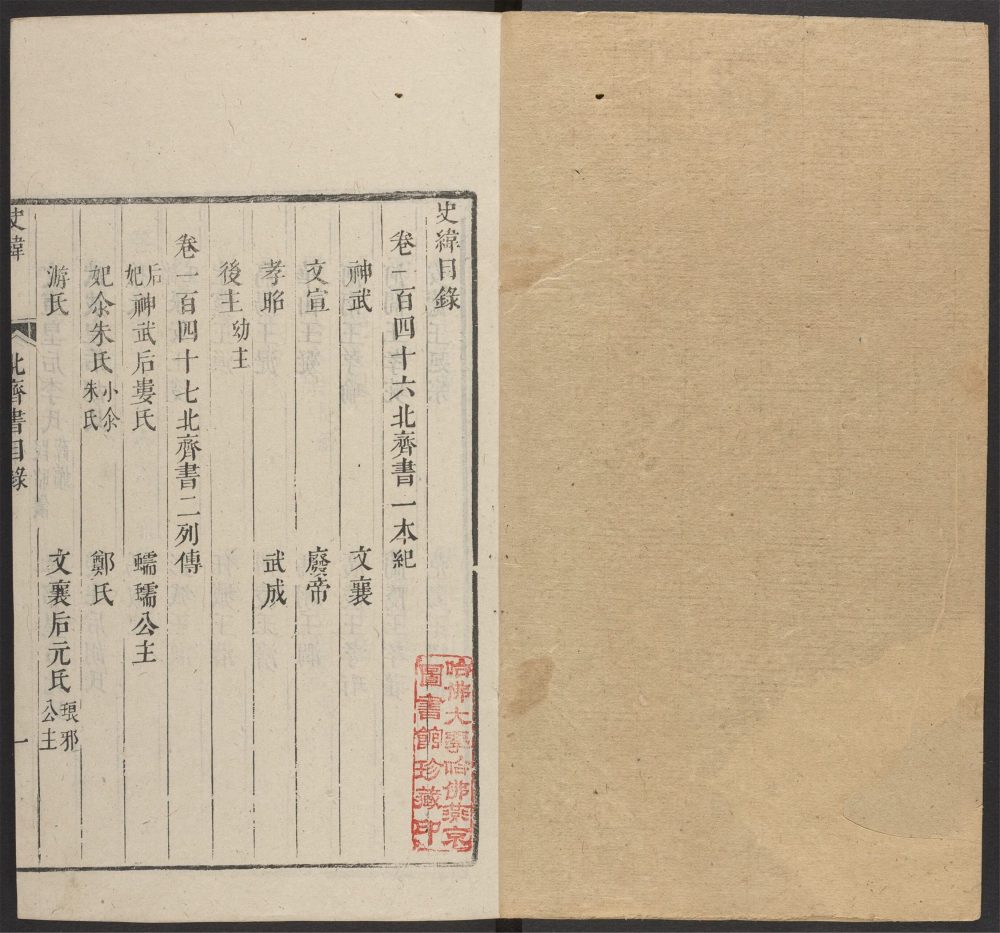 史緯目錄
卷一百四十六北齊書一本紀
神武 文襄
文宣 廢帝
孝昭 武成
後主 幼主
卷一百四十七北齊書二列傳
后妃 神武后婁氏 蠕蠕公主
妃尒朱氏 小尒朱氏 鄭氏
游氏 文襄后元氏 琅邪公主
史緯 北齊書目錄 一
哈佛大學哈佛燕京
圖書館珍藏印